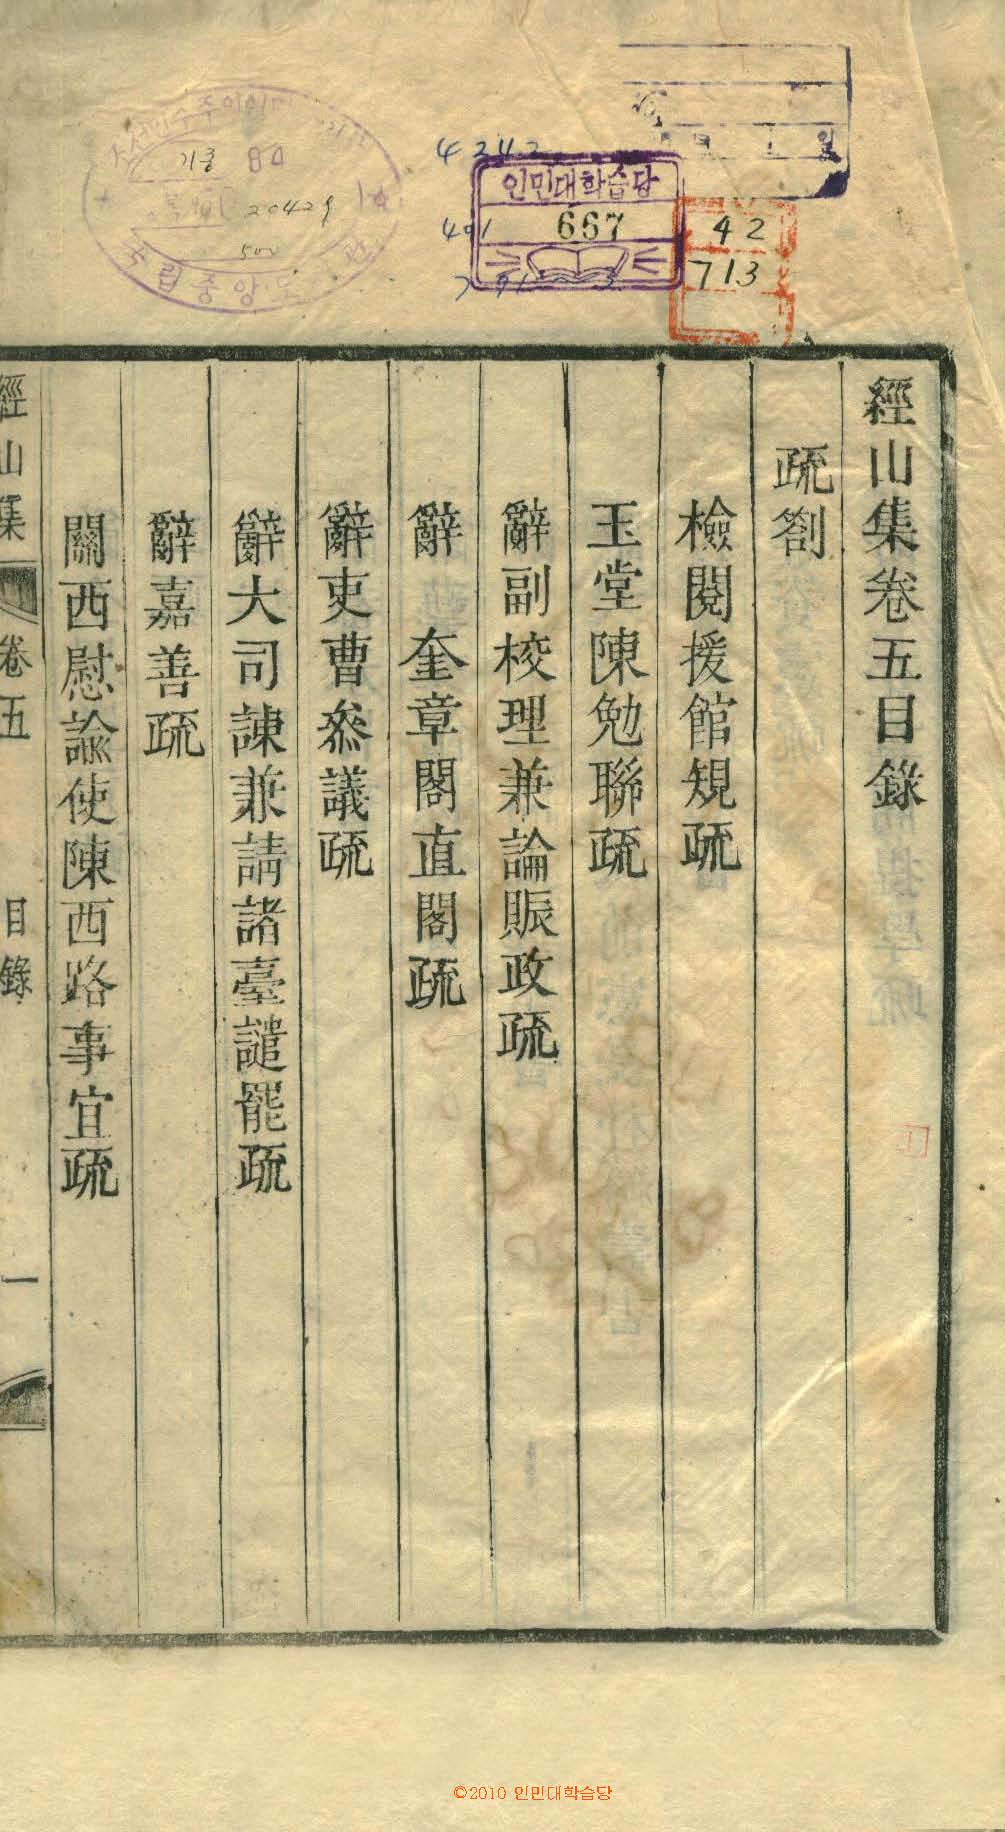 經山集卷五目錄
疏劄
檢閱援館規疏
玉堂陳勉聯疏
辭副校理兼論賑政疏
辭 奎章閣直閣疏
辭吏曹叅議疏
辭大司諫兼請諸臺譴罷疏
辭嘉善疏
關西慰諭使陳西路事宜疏
經山集 卷五 目錄 一
인민대학습당
667
42
713
4242
401
791
3
기증 84
20429
500
국립중앙도
일
©2010 인민대학습당